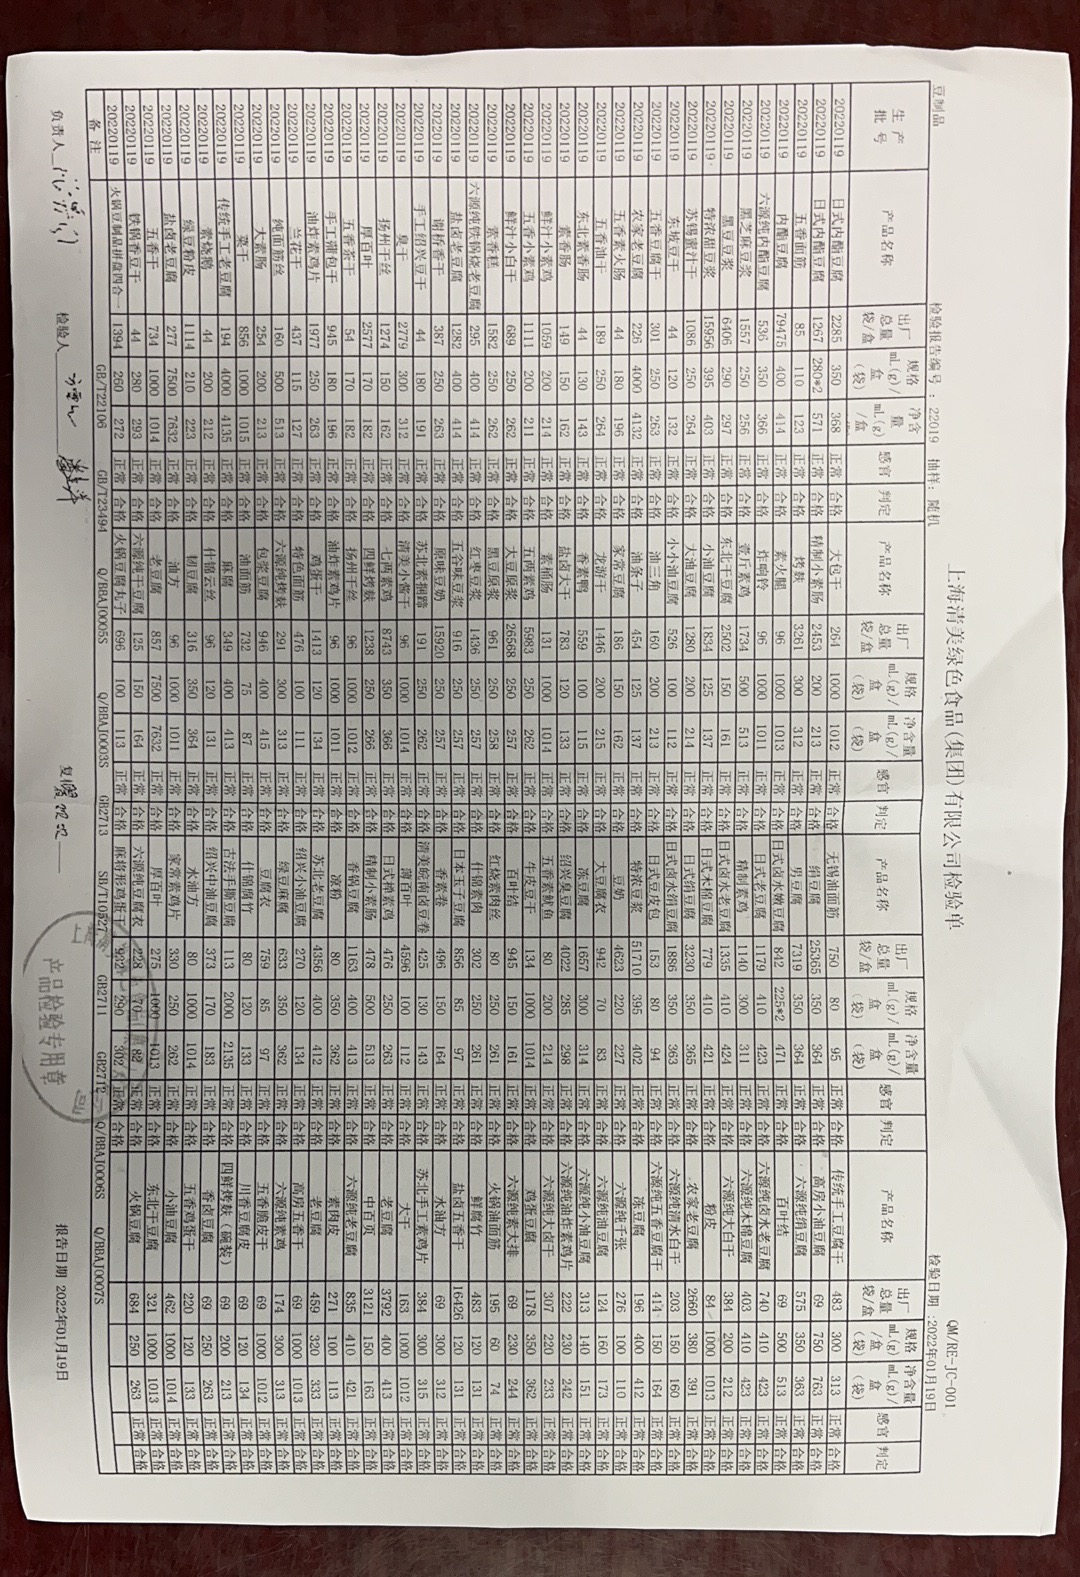 上海清美绿色食品(集团)有限公司检验单
QM/RE-JC-001
豆制品 检验报告编号：22019 抽样：随机 检验日期：2022年01月19日
生产批号 产品名称 出厂总量袋/盒 规格mL(g)/盒(袋) 净含量mL(g)/盒 感官 判定 产品名称 出厂总量袋/盒 规格mL(g)/盒(袋) 净含量mL(g)/盒(袋) 感官 判定 产品名称 出厂总量袋/盒 规格mL(g)/盒(袋) 净含量mL(g)/盒(袋) 感官 判定 产品名称 出厂总量袋/盒 规格mL(g)/盒(袋) 净含量mL(g)/盒(袋) 感官 判定
20220119 日式内酯豆腐 2285 350 368 正常 合格 大包干 264 1000 1012 正常 合格 无锡油面筋 750 80 95 正常 合格 传统手工豆腐干 483 300 313 正常 合格
20220119 日式内酯豆腐 1267 280*2 571 正常 合格 精制小素肠 2453 200 213 正常 合格 绢豆腐 25365 350 364 正常 合格 高房小油豆腐 69 750 763 正常 合格
20220119 五香面筋 85 110 123 正常 合格 烤麸 3261 300 312 正常 合格 男豆腐 7319 350 364 正常 合格 六源纯绢豆腐 575 350 363 正常 合格
20220119 内酯豆腐 79475 400 414 正常 合格 素火腿 96 1000 1013 正常 合格 日式卤水嫩豆腐 842 225*2 471 正常 合格 百叶结 69 500 513 正常 合格
20220119 六源纯内酯豆腐 536 350 366 正常 合格 炸响铃 96 1000 1011 正常 合格 日式老豆腐 1179 410 423 正常 合格 六源纯卤水老豆腐 740 410 423 正常 合格
20220119 黑芝麻豆浆 1557 250 256 正常 合格 壹斤素鸡 1734 500 513 正常 合格 精制素鸡 1140 300 311 正常 合格 六源纯木棉豆腐 403 410 423 正常 合格
20220119 黑豆豆浆 6406 290 297 正常 合格 东北干豆腐 2502 150 161 正常 合格 日式卤水老豆腐 1335 410 424 正常 合格 六源纯大白干 384 200 212 正常 合格
20220119 特浓甜豆浆 15956 395 403 正常 合格 小油豆腐 1834 125 137 正常 合格 日式木棉豆腐 779 410 421 正常 合格 粉皮 84 1000 1013 正常 合格
20220119 苏锡蜜汁干 1086 250 264 正常 合格 大油豆腐 1280 200 214 正常 合格 日式绢豆腐 3230 350 365 正常 合格 农家老豆腐 2660 380 391 正常 合格
20220119 东坡豆干 44 120 132 正常 合格 小小油豆腐 526 100 112 正常 合格 日式卤水绢豆腐 1886 350 363 正常 合格 六源纯清水白干 203 150 160 正常 合格
20220119 五香豆腐干 301 250 263 正常 合格 油三角 160 200 213 正常 合格 日式豆皮包 153 80 94 正常 合格 六源纯五香豆腐干 414 150 164 正常 合格
20220119 农家老豆腐 226 4000 4132 正常 合格 油条子 454 125 137 正常 合格 特浓豆浆 51710 395 402 正常 合格 冻豆腐 196 400 412 正常 合格
20220119 五香素火肠 44 180 196 正常 合格 家常豆腐 186 150 162 正常 合格 豆奶 4623 220 227 正常 合格 六源纯千张 276 100 110 正常 合格
20220119 五香油干 189 250 264 正常 合格 龙游干 1446 200 215 正常 合格 大豆腐衣 942 70 83 正常 合格 六源纯油豆腐 124 160 173 正常 合格
20220119 东北素香肠 44 130 143 正常 合格 香素鸭 559 100 115 正常 合格 冻豆腐 1657 300 314 正常 合格 六源纯小油豆腐 313 140 151 正常 合格
20220119 素香肠 149 150 162 正常 合格 盐卤大干 783 120 133 正常 合格 绍兴臭豆腐 4022 285 298 正常 合格 六源纯油炸素鸡片 222 230 242 正常 合格
20220119 鲜汁小素鸡 1059 200 214 正常 合格 素捆肠 131 1000 1014 正常 合格 五香素鱿鱼 80 200 214 正常 合格 六源纯大卤干 307 220 233 正常 合格
20220119 五香小素鸡 1111 200 211 正常 合格 五两素鸡 5983 250 262 正常 合格 牛皮豆干 134 1000 1014 正常 合格 鸡蛋豆腐 1178 350 362 正常 合格
20220119 鲜汁小白干 689 250 262 正常 合格 大豆原浆 26568 250 257 正常 合格 百叶结 945 150 161 正常 合格 六源纯素大排 69 230 244 正常 合格
20220119 素香糕 1582 250 262 正常 合格 黑豆原浆 961 250 258 正常 合格 红烧素肉丝 80 250 261 正常 合格 火锅油面筋 195 60 74 正常 合格
20220119 六源纯铁锅烧老豆腐 295 400 414 正常 合格 红枣豆浆 1436 250 257 正常 合格 什锦素肉 302 250 261 正常 合格 鲜腐竹 483 120 131 正常 合格
20220119 盐卤老豆腐 1282 400 414 正常 合格 五谷味豆浆 916 250 257 正常 合格 日本玉子豆腐 856 85 97 正常 合格 盐卤五香干 16426 120 131 正常 合格
20220119 谢桥香干 387 250 263 正常 合格 原味豆奶 15920 250 257 正常 合格 香素卷 496 150 164 正常 合格 水油方 69 300 312 正常 合格
20220119 手工绍兴豆干 44 180 191 正常 合格 苏北素捆蹄 191 250 262 正常 合格 清美皖南卤豆卷 425 130 143 正常 合格 苏北手工素鸡片 384 300 315 正常 合格
20220119 臭干 2779 300 312 正常 合格 清美小酱干 96 1000 1014 正常 合格 薄百叶 4596 100 112 正常 合格 大干 163 1000 1012 正常 合格
20220119 扬州干丝 1274 150 162 正常 合格 七两素鸡 8743 350 366 正常 合格 日式棒素鸡 476 250 263 正常 合格 老豆腐 3792 400 413 正常 合格
20220119 厚百叶 2577 170 182 正常 合格 四鲜烤麸 1238 250 266 正常 合格 精制小素肠 478 500 513 正常 合格 中百页 3121 150 163 正常 合格
20220119 五香茶干 54 170 182 正常 合格 扬州干丝 96 1000 1012 正常 合格 香锅豆腐 1163 400 413 正常 合格 六源纯老豆腐 835 410 421 正常 合格
20220119 手工潮包干 945 180 196 正常 合格 油炸素鸡片 96 1000 1011 正常 合格 凉粉 80 350 362 正常 合格 素肉皮 271 100 113 正常 合格
20220119 油炸素鸡片 1977 250 263 正常 合格 鸡蛋干 1413 120 134 正常 合格 苏北老豆腐 4356 400 412 正常 合格 老豆腐 459 320 333 正常 合格
20220119 兰花干 437 115 127 正常 合格 特色面筋 476 100 111 正常 合格 绍兴小油豆腐 270 120 134 正常 合格 高房五香干 69 1000 1013 正常 合格
20220119 纯面筋丝 160 500 513 正常 合格 六源纯烤麸 291 300 313 正常 合格 绿豆麻腐 633 350 362 正常 合格 六源纯素鸡 174 300 313 正常 合格
20220119 大素肠 254 200 213 正常 合格 包浆豆腐 946 400 415 正常 合格 豆腐衣 759 85 97 正常 合格 五香脆皮干 69 1000 1012 正常 合格
20220119 菜干 856 1000 1015 正常 合格 油面筋 732 75 87 正常 合格 什锦腐竹 80 120 133 正常 合格 川香豆腐皮 69 120 134 正常 合格
20220119 传统手工老豆腐 194 4000 4135 正常 合格 麻腐 349 400 413 正常 合格 古法手撕豆腐 113 2000 2135 正常 合格 四鲜烤麸(碗装) 69 200 213 正常 合格
20220119 素烧鹅 44 200 212 正常 合格 什锦云丝 96 120 131 正常 合格 绍兴中油豆腐 373 170 183 正常 合格 香卤豆腐 69 250 263 正常 合格
20220119 绿豆粉皮 1114 210 223 正常 合格 韧豆腐 316 350 364 正常 合格 水油方 80 1000 1014 正常 合格 五香鸡蛋干 220 120 133 正常 合格
20220119 盐卤老豆腐 277 7500 7632 正常 合格 油方 96 1000 1011 正常 合格 家常素鸡片 330 250 262 正常 合格 小油豆腐 462 1000 1014 正常 合格
20220119 五香干 734 1000 1014 正常 合格 老豆腐 857 7500 7632 正常 合格 厚百叶 275 1000 1013 正常 合格 东北干豆腐 321 1000 1013 正常 合格
20220119 铁锅香豆干 44 280 293 正常 合格 六源纯干豆腐 125 150 164 正常 合格 六源纯豆腐衣 228 70 82 正常 合格 火锅豆腐 684 250 263 正常 合格
20220119 火锅豆制品拼盘四合一 1394 260 272 正常 合格 火锅豆腐丸子 696 100 113 正常 合格 麻将形鸡蛋干 932 290 302 正常 合格
备注 GB/T22106 GB/T23494 Q/BBAJ0005S Q/BBAJ0003S GB2713 SB/T10527 GB2711 GB2712 Q/BBAJ0006S Q/BBAJ0007S
负责人 检验人 复核 报告日期 2022年01月19日
产品检验专用章